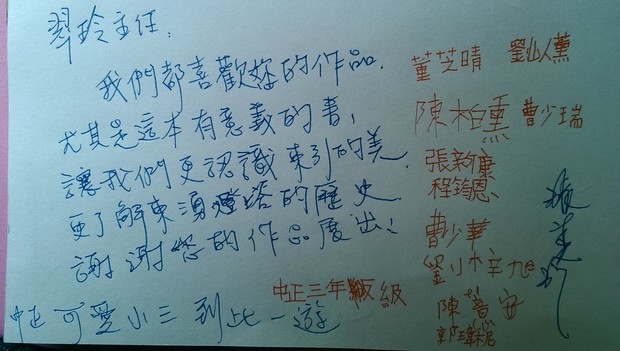 翠玲主任:
我們都喜歡您的作品.
尤其是這本有意義的書,
讓我們更認識東引的美.
更了解東湧燈塔的歷史.
謝謝您的作品展出!
中正可愛小三到此一遊
董芝晴 劉仙人薰
陳柏熏 曹少瑞
張新廉
程鈞恩
曹少華
中正三年級
陳薏安